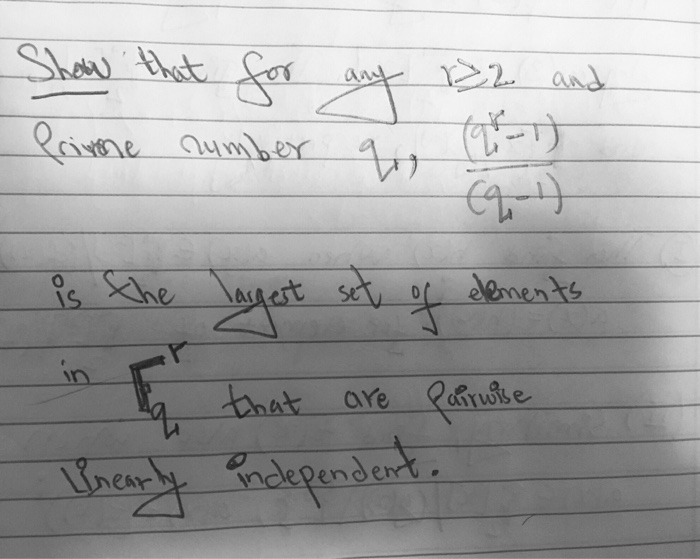 Show that for any r≥2 and
Prime number q, (q^r-1)/(q-1)
is the largest set of elements
in F_q^r that are Pairwise
linearly independent.